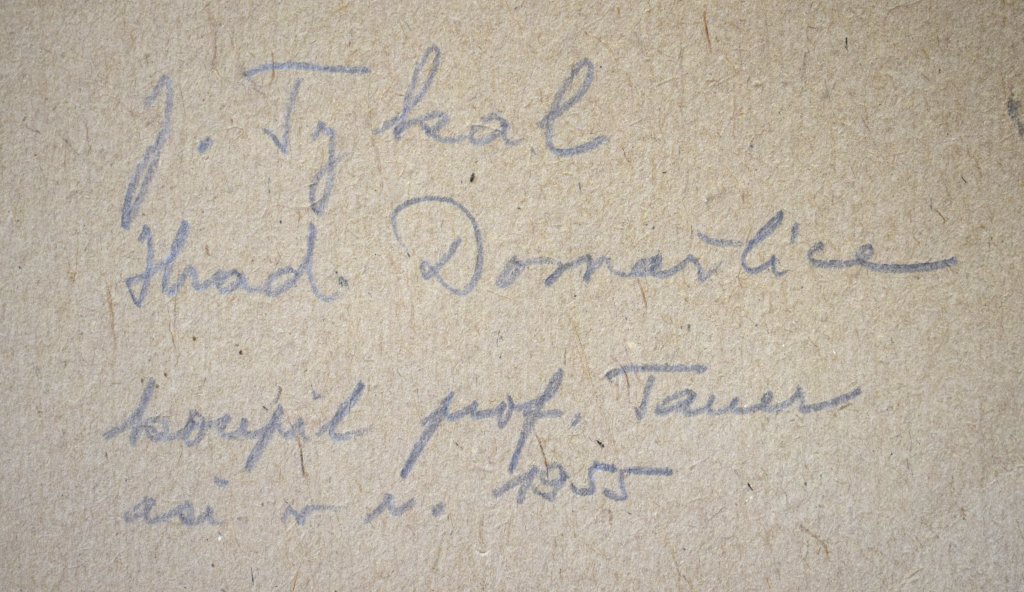 J. Tykal
Hrad. Domažlice
koupil prof. Tauer
asi v r. 1955